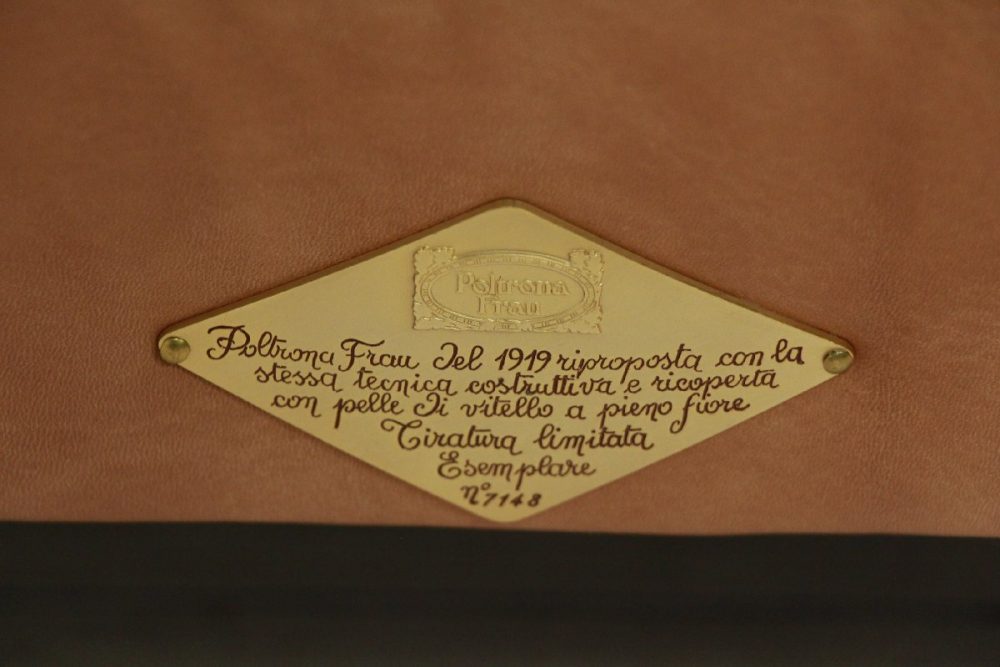 Poltrona
Frau
Poltrona Frau del 1919 riproposta con la
stessa tecnica costruttiva e ricoperta
con pelle di vitello a pieno fiore
Tiratura limitata
Esemplare
n° 7148